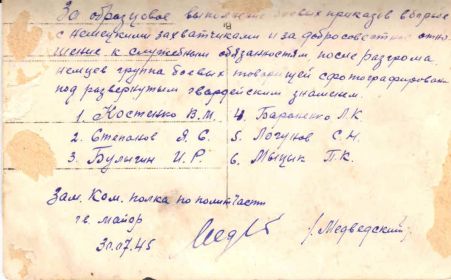 За образцовое выполнение боевых приказов в борьбе
с немецкими захватчиками и за добросовестное отно-
шение к служебным обязанностям, после разгрома
немцев группа боевых товарищей сфотографирована
под развернутым гвардейским знаменем.
1. Костенко В.М. 4. Бараненко Л.К.
2. Степанов Я.С. 5. Логунов С.Н.
3. Булыгин И.Р. 6. Мыцик П.К.
Зам. Ком. полка по политчасти
гв. майор
30.07.45 /Медведский/